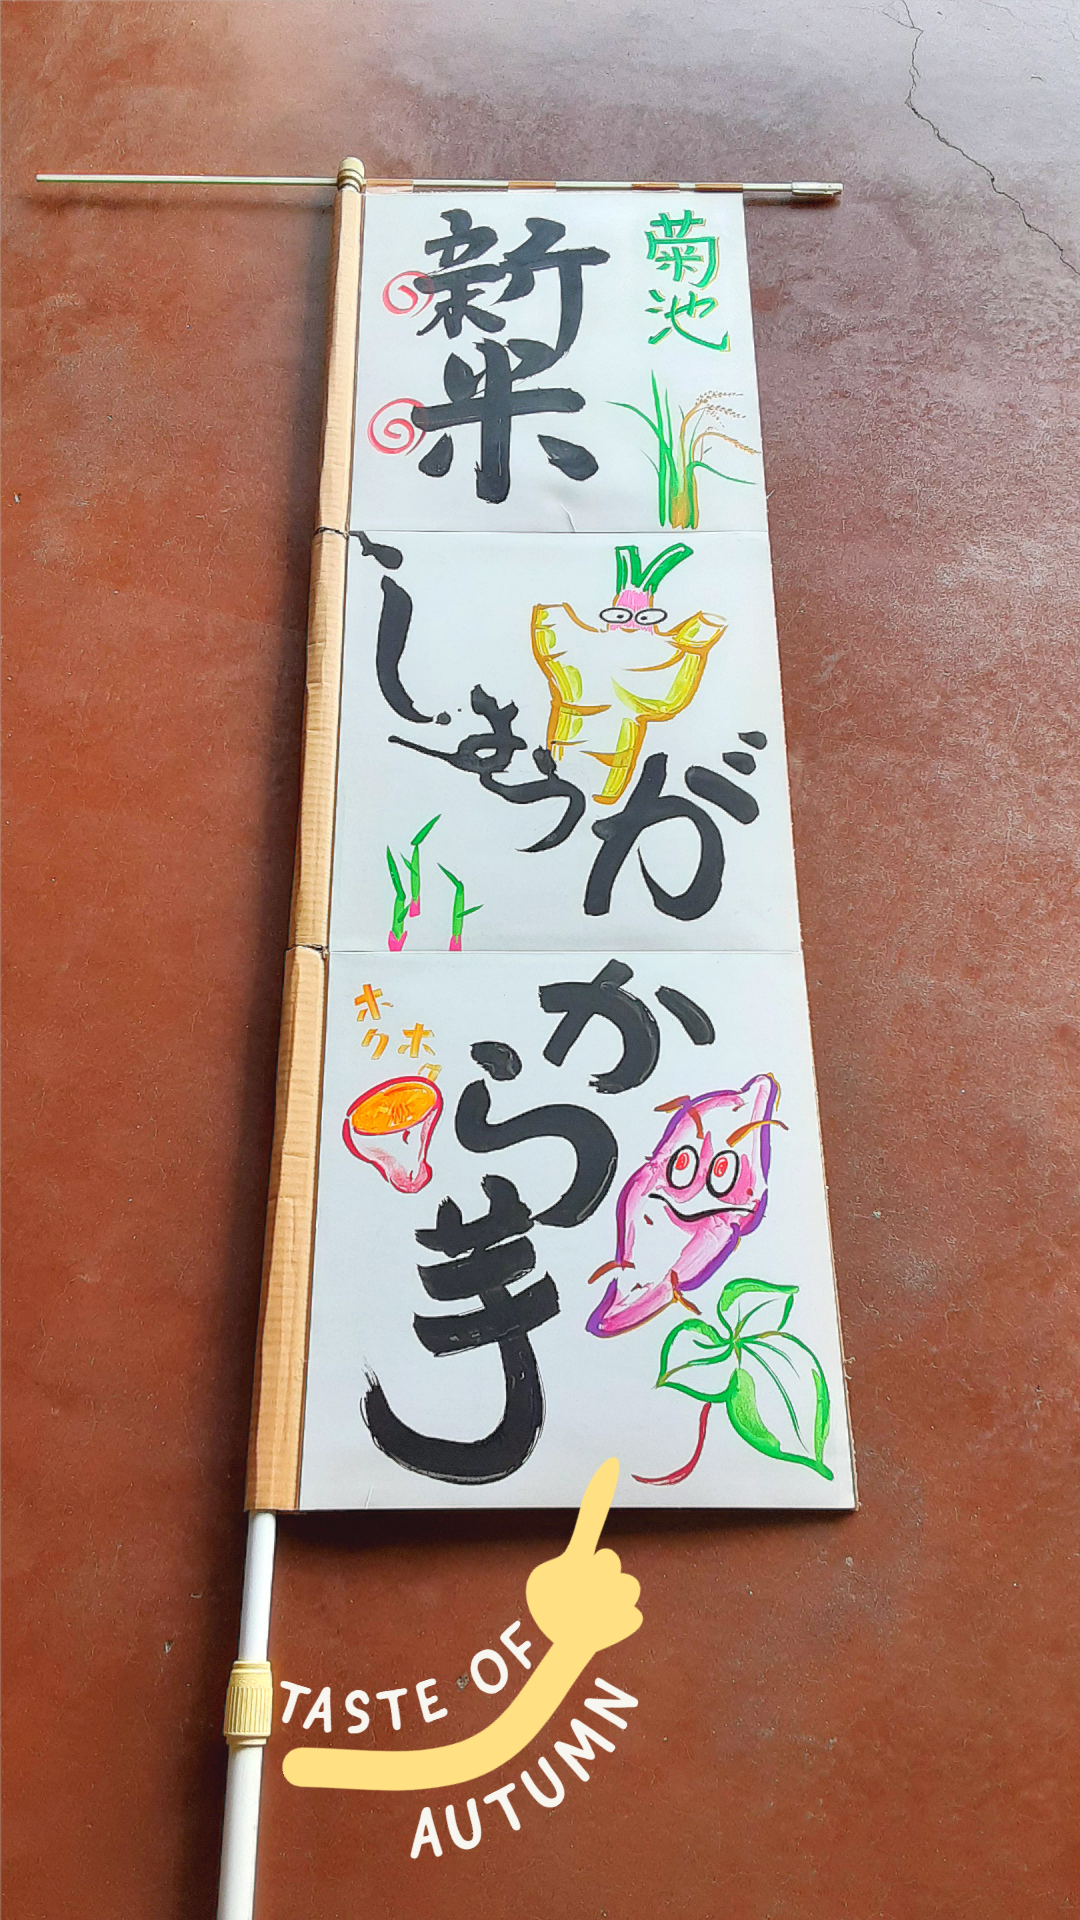 菊池
新米
しょうが
から芋
ホクホク
TASTE OF
AUTUMN